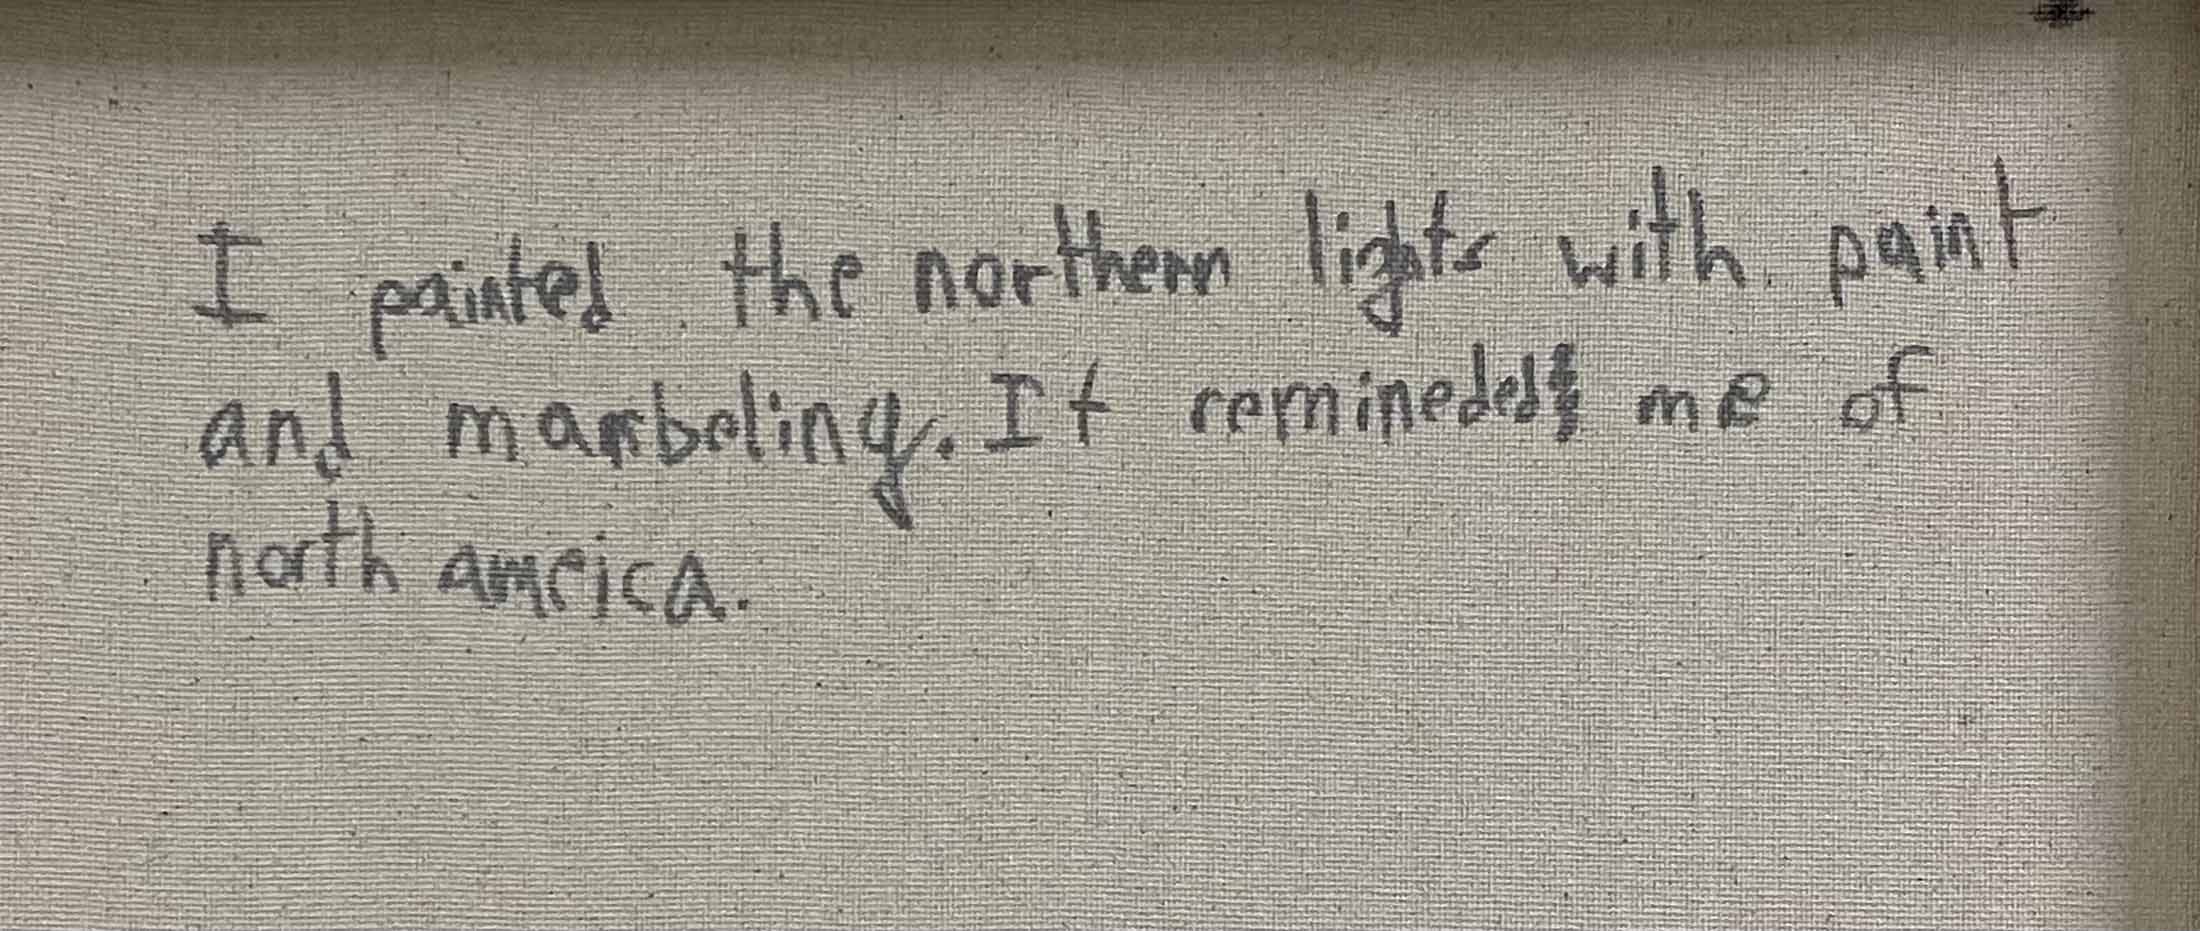 I painted the northern lights with paint
and marbeling. It remineded me of
north ameica.